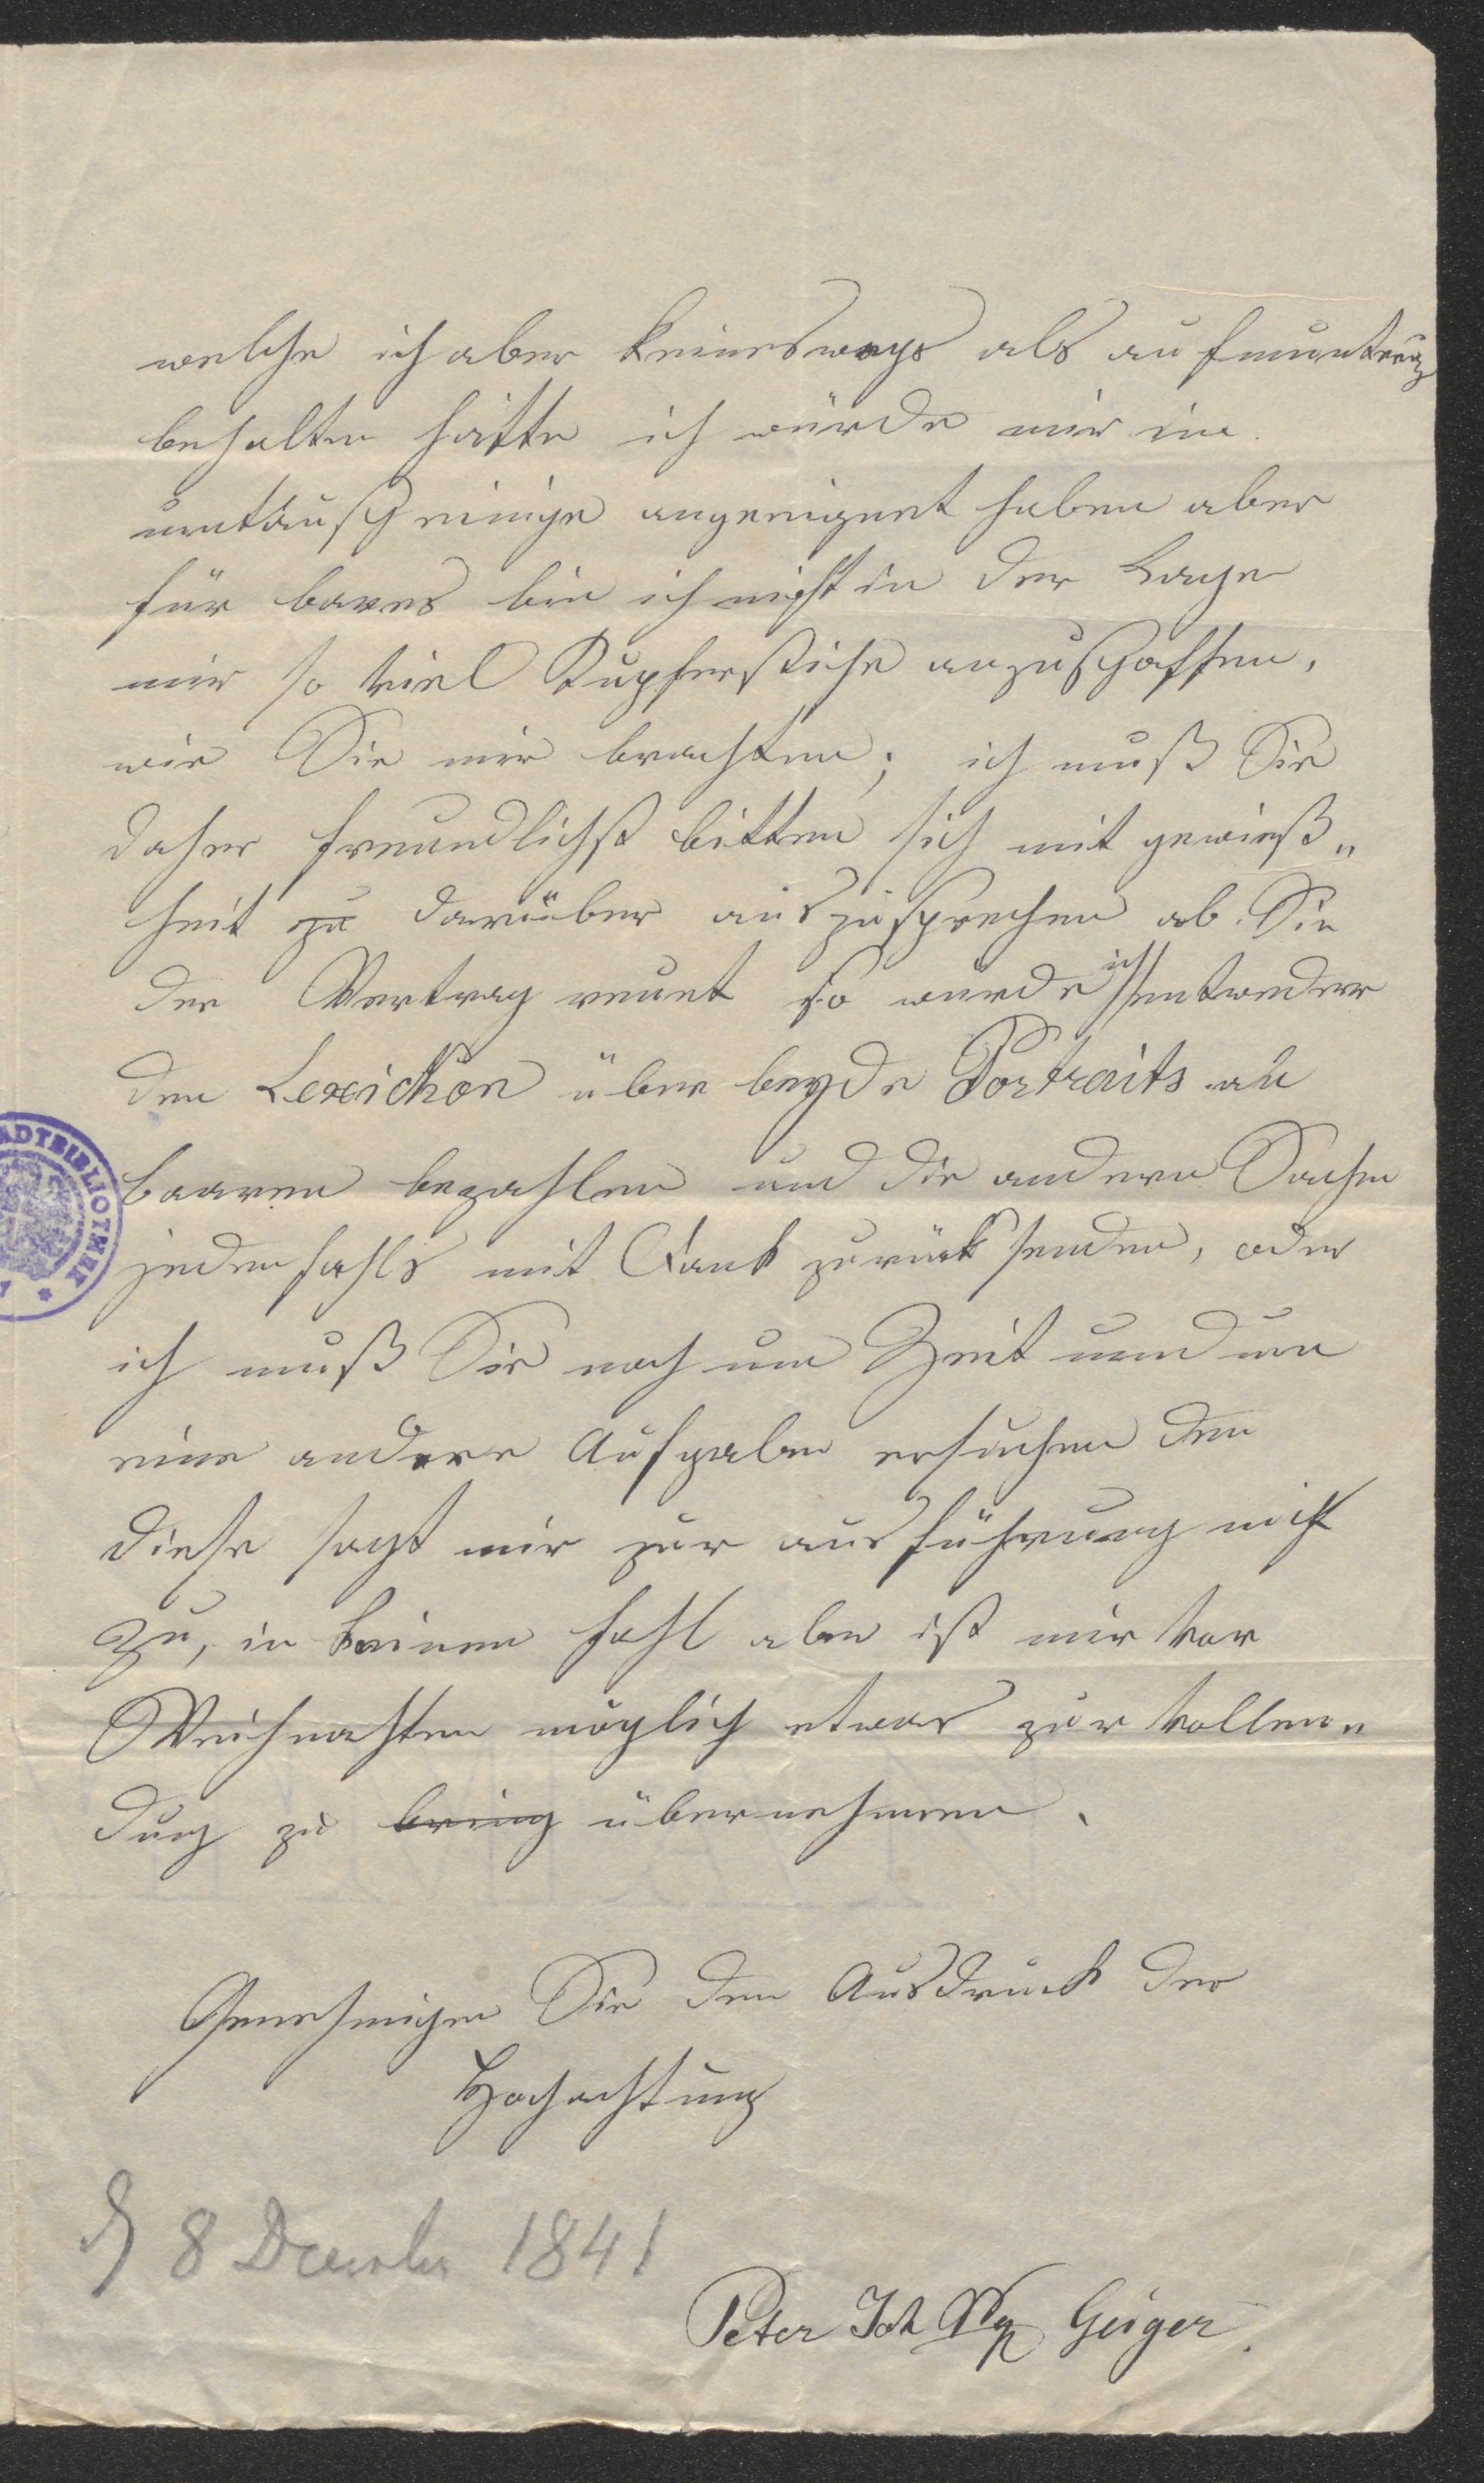 welche ich aber keineswegs als aufmunterung
behalten hätte ich würde mir im
umtausch einige angeeignet haben aber
für bares bin ich nicht in der Lage
mir so viel Kupferstiche anzuschaffen,
wie Sie mir brachten; ich muß Sie
daher freundlichst bitten sich mit gewieß„
heit zu darüber auszusprechen ob Sie
der Vertrag reuet so würde ich entweder
den Lexickon über beyde Portraits an
baaren bezahlen und die andern Sachen
jedenfahls mit Dank zurück senden, oder
ich muß Sie noch um Zeit und um
eine andere Aufgabe ersuchen den
diese sagt mir zur ausführung nicht
zu, in keinen fahl aber ist mir vor
Weihnachten möglich etwas zur vollen„
dung zu bring übernehmen.
Genehmigen Sie den Ausdruck der
Hochachtung
8 December 1841
Peter Joh Np Geiger.
STADTBIBLIOTHEK